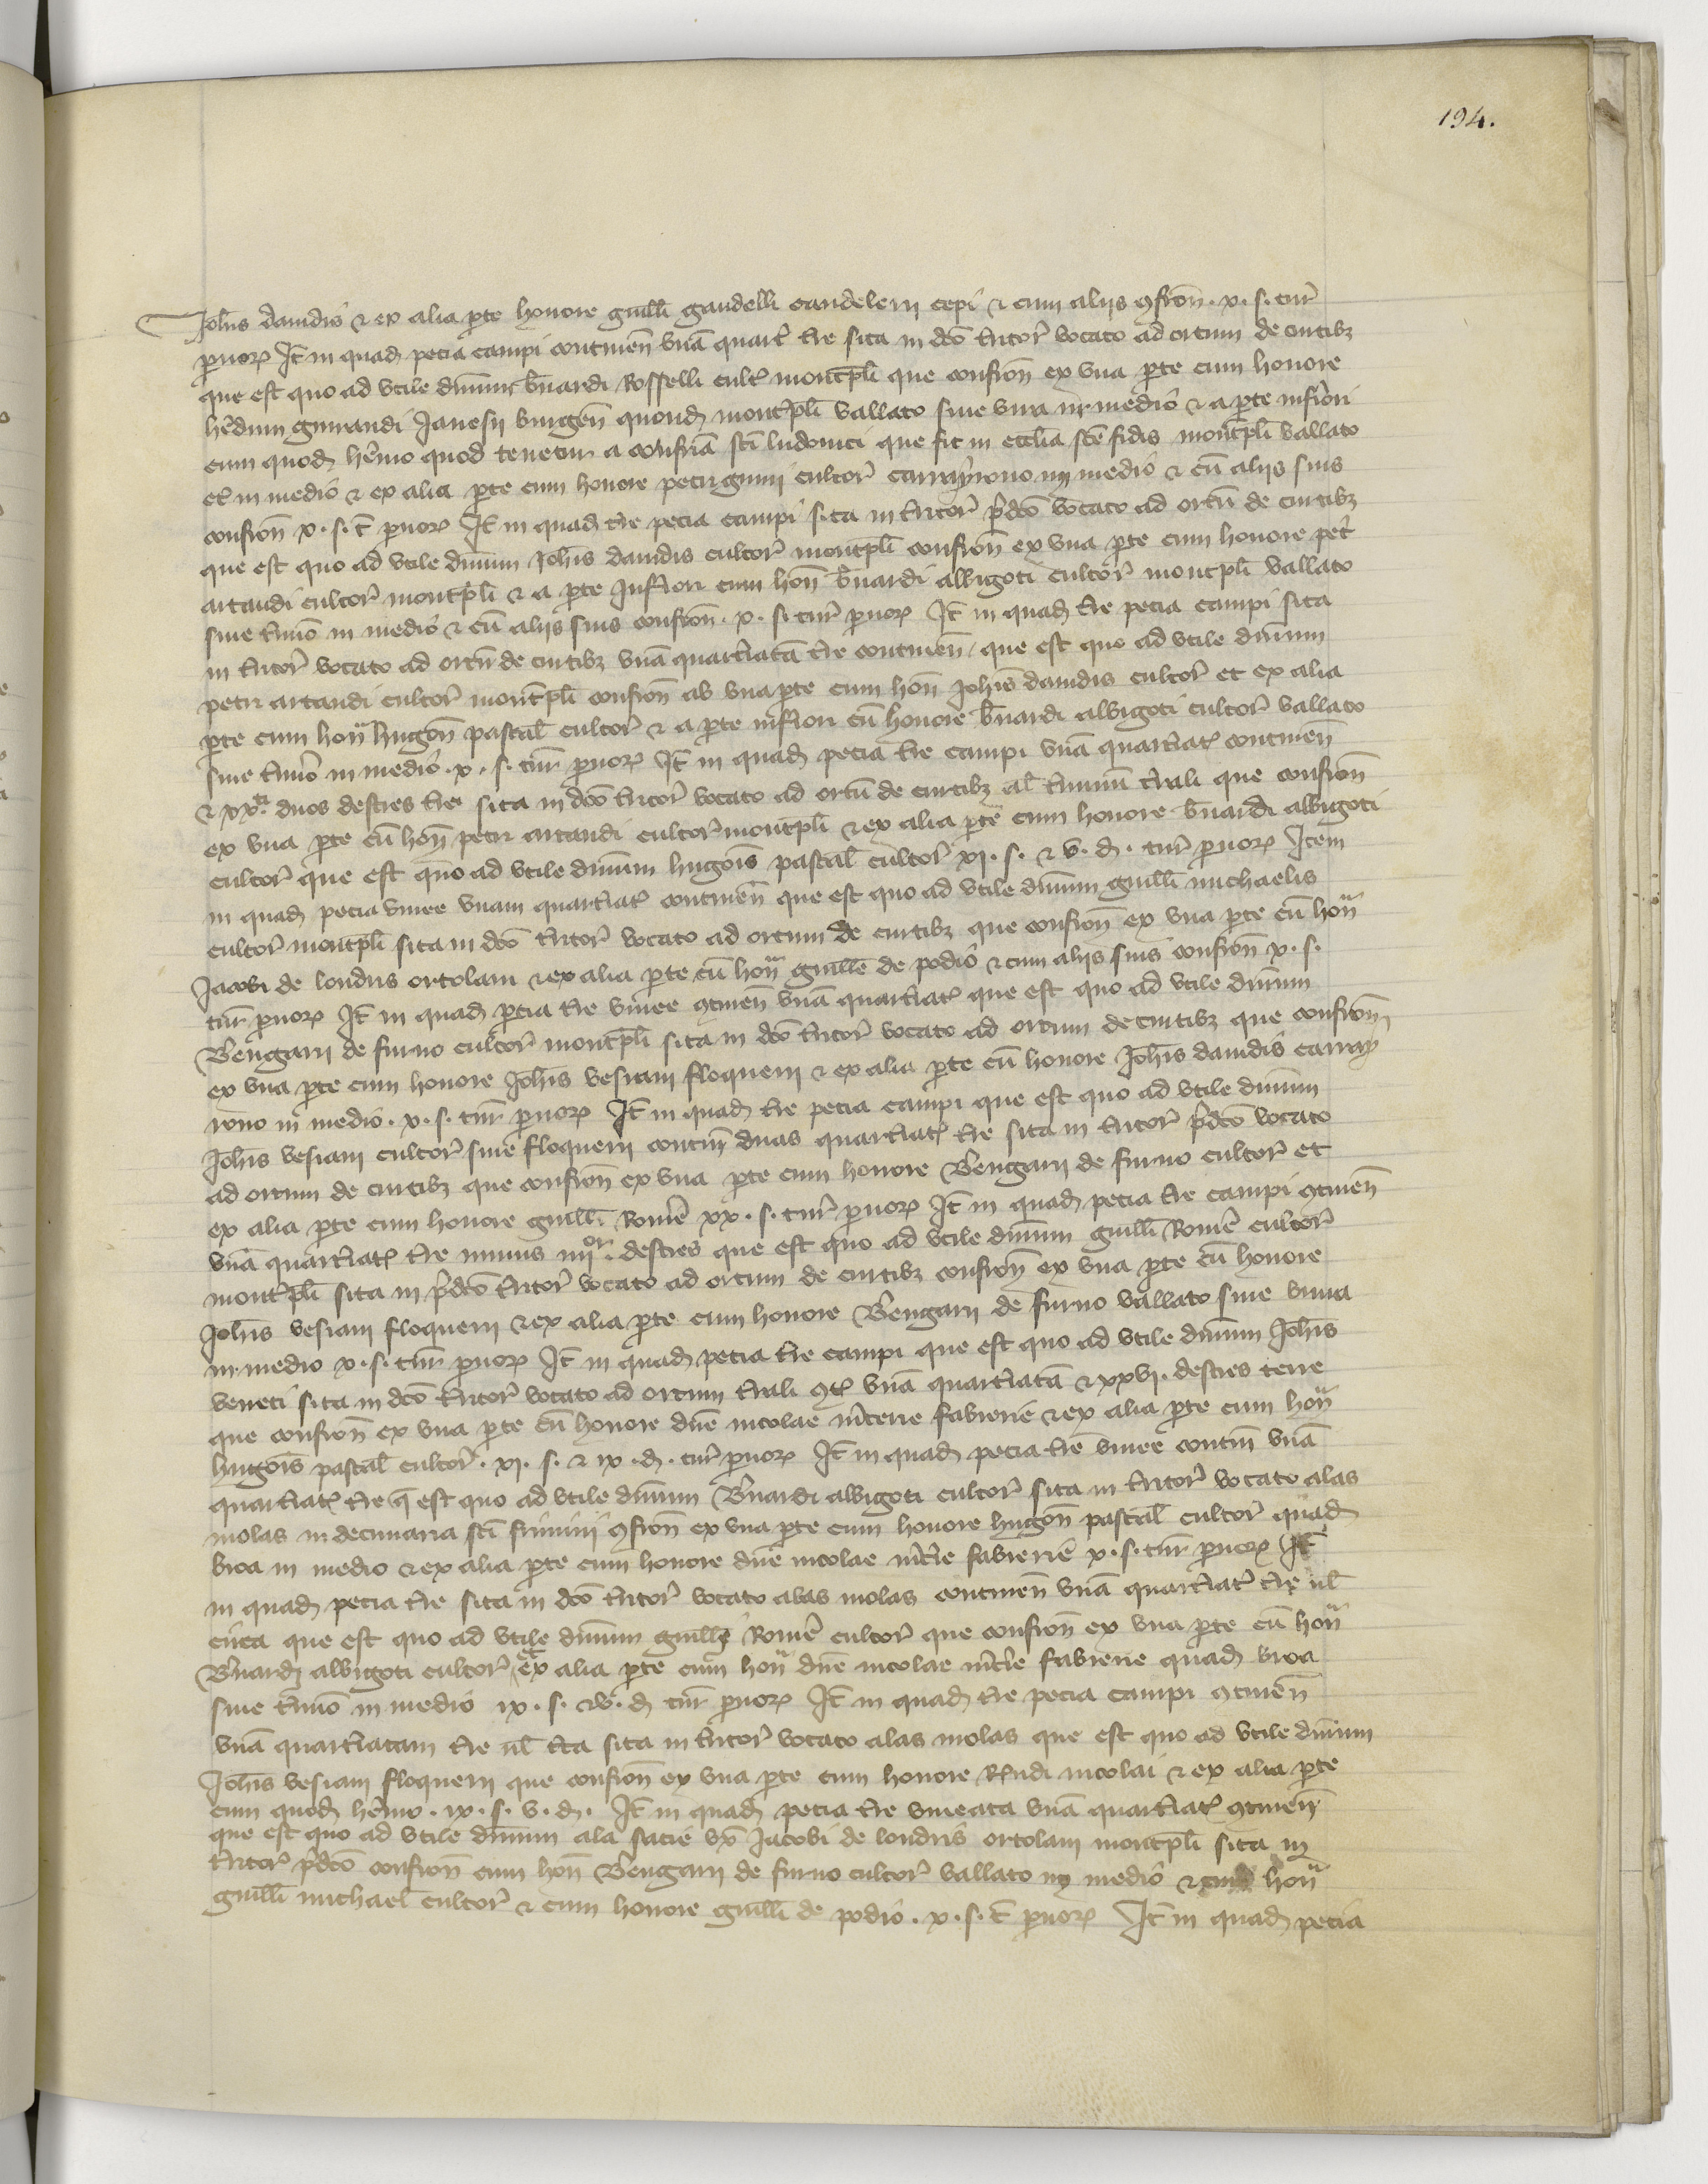 194.
Joh̄is dauidis & ex alia p̱te honore guill̄i gaudelli candelerii cepi & cum aliis ꝯfron̄ . x . s . tur̄
p̱uoṟ It̄ in quad̄ pecia campi continen̄ vnā quart̄ t̄re sita in dc̄o t̄ritor̄ vocato ad ortum de curtibꝫ
que est quo ad vtile dn̄ium b̄nardi Rosselli cult̄ montp̱li que confron̄ ex vna p̱te cum honore
h̄edum guiraudi Janesii burgen̄ quond̄ montp̱li vallato siue viua in medio & a p̱te inferiori
cum quod̄ h̄emo quod tenetur a confr̄ia sc̄i ludouici que fit in eccl̄ia sc̄e fidis montp̱li vallato
et̄ in medio & ex alia p̱te cum honore petri guiii cultor̄ carrayrono in medio & cū aliis suis
confron̄ x . s . t̄ p̱uoṟ It̄ in quad̄ t̄re pecia campi sita in t̄ritor̄ p̄dc̄o vocato ad ortū de curtibꝫ
que est quo ad vtile dn̄ium Joh̄is dauidis cultor̄ montp̱li confron̄ ex vna p̱te cum honore pet̄
artaudi cultor̄ montp̱li & a p̱te inferiori cum hon̄ b̄nardi albigoti cultor̄ montp̱li vallato
siue t̄mīo in medio & cū aliis suis confron̄ . x . s . tur̄ p̱uoṟ It̄ in quad̄ t̄re pecia campi sita
in t̄ritor̄ vocato ad ortū de curtibꝫ vnā quart̄iatā t̄re continen̄ que est quo ad vtile dn̄ium
petri artaudi cultor̄ montp̱li confron̄ ab vna p̱te cum hon̄ Joh̄is dauidis cultor̄ et ex alia
p̱te cum hon̄ hugon̄ pascal̄ cultor̄ & a p̱te inferiori cū honore b̄nardi albigoti cultor̄ vallato
siue t̄mīo in medio . x . s . tur̄ p̱uoṟ It̄ in quad̄ pecia t̄re campi vnā quart̄iat̄ continen̄
& xxᵗⁱ duos destres t̄re sita in dc̄o t̄ritor̄ vocato ad ortū de curtibꝫ al̄ t̄minū t̄rali que confron̄
ex vna p̱te cū hon̄ petri artaudi cultor̄ montp̱li & ex alia p̱te cum honore b̄nardi albigoti
cultor̄ que est quo ad vtile dn̄ium hugōis pascal̄ cultor̄ xi . s . & v . d̄ . tur̄ p̱uoṟ Item
in quad̄ pecia vinee vnam quart̄iat̄ continen̄ que est quo ad vtile dn̄ium guill̄i michaelis
cultor̄ montp̱li sita in dc̄o t̄ritor̄ vocato ad ortum de curtibꝫ que confron̄ ex vna p̱te cū hon̄
Jacobi de londris ortolani & ex alia p̱te cū hon̄ guill̄i de podio & cum aliis suis confron̄ x . s .
tur̄ p̱uoṟ It̄ in quad̄ pecia t̄re vinee ꝯtinen̄ vnā quart̄iat̄ que est quo ad vtile dn̄ium
B̄engarii de furno cultor̄ montp̱li sita in dc̄o t̄ritor̄ vocato ad ortum de curtibꝫ que confron̄
ex vna p̱te cum honore Joh̄is vesiani floquerii & ex alia p̱te cū honore Joh̄is dauidis carray
rono in medio . x . s . tur̄ p̱uoṟ It̄ in quad̄ t̄re pecia campi que est quo ad vtile dn̄ium
Joh̄is vesiani cultor̄ siue floquerii contin̄ duas quart̄iat̄ t̄re sita in t̄ritor̄ p̄dc̄o vocato
ad ortum de curtibꝫ que confron̄ ex vna p̱te cum honore B̄engarii de furno cultor̄ et
ex alia p̱te cum honore guill̄i Romē xx . s . tur̄ p̱uoṟ It̄ in quad̄ pecia t̄re campi ꝯtinen̄
vnā quart̄iat̄ t̄re minus iiiiᵒʳ destres que est quo ad vtile dn̄ium guill̄i Romē cultor̄
montp̱li sita in p̄dc̄o t̄ritor̄ vocato ad ortum de curtibꝫ confron̄ ex vna p̱te cū honore
Joh̄is vesiani floquerii & ex alia p̱te cum honore B̄engarii de furno vallato siue viuua
in medio x . s . tur̄ p̱uoṟ It̄ in quad̄ pecia t̄re campi que est quo ad vtile dn̄ium Joh̄is
veneti sita in dc̄o t̄ritor̄ vocato ad ortum t̄rali ꝯt̄ vnā quart̄iatā & xxvi . destres terre
que confron̄ ex vna p̱te cū honore dn̄e nicolae m̄cerie fabrerie & ex alia p̱te cum hon̄
hugōis pascal̄ cultor̄ . xi . s . & ix . d̄ . tur̄ p̱uoṟ It̄ in quad̄ pecia t̄re vinee contin̄ vnā
quart̄iat̄ t̄re q̄ est quo ad vtile dn̄ium B̄nardi albigoti cultor̄ sita in t̄ritor̄ vocato alas
molas in decimaria sc̄i firmini ꝯfron̄ ex vna p̱te cum honore hugon̄ pascal̄ cultor̄ quad̄
broa in medio & ex alia p̱te cum honore dn̄e nicolae m̄cīe fabrerie x . s . tur̄ p̱uoṟ It̄
in quad̄ pecia t̄re sita in dc̄o t̄ritor̄ vocato alas molas continen̄ vnā quart̄iat̄ t̄re ūl
circa que est quo ad vtile dn̄ium guill̄i Romē cultor̄ que confron̄ ex vna p̱te cū hon̄
B̄nardi albigoti cultor̄ & ex alia p̱te cum hon̄ dn̄e nicolae m̄cīe fabrerie quad̄ broa
siue t̄mīo in medio ix . s . & v . d̄ tur̄ p̱uoṟ It̄ in quad̄ t̄re pecia campi ꝯtinen̄
vnā quart̄iatam t̄re ūl c̄ca sita in t̄ritor̄ vocato alas molas que est quo ad vtile dn̄ium
Joh̄is vesiani floquerii que confron̄ ex vna p̱te cum honore R̄mdi nicolai & ex alia p̱te
cum quod̄ h̄emo . ix . s . v . d̄ . It̄ in quad̄ pecia t̄re vineata vnā quart̄iat̄ ꝯtinen̄
que est quo ad vtile dn̄ium ala sacie vx̄ Jacobi de londris ortolani montp̱li sita in
t̄ritor̄ p̄dc̄o confron̄ cum hon̄ B̄engarii de furno cultor̄ vallato in medio & cum hon̄
guill̄i michael̄ cultor̄ & cum honore guill̄i de podio . x . s . t̄ p̱uoṟ It̄ in quad̄ pecia